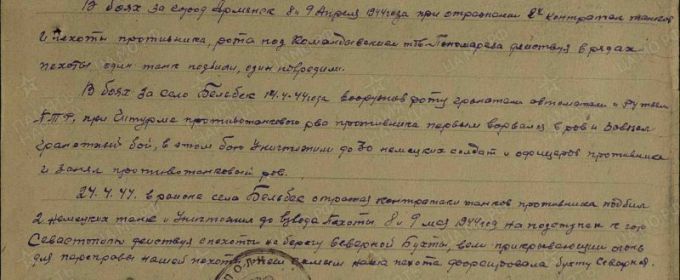 В боях за город Армянск 8 и 9 Апреля 1944 года при отражении 2х контратак танков
и пехоты противника, рота под командованием т. Пономарева действуя в рядах
пехоты один танк подбили, один повредили.
В боях за село Бельбек 14.4.44 года вооружив роту гранатами автоматами и ружьем
ПТР, при штурме противотанкового рва противника первым ворвался в ров и завязал
гранатный бой, в этом бою уничтожили до 30 немецких солдат и офицеров противника
и занял противотанковый ров.
24.4.44. в районе села Бельбек отражая контратаки танков противника подбил
2 немецких танка и уничтожил до взвода пехоты 8 и 9 мая 1944 год на подступах к гор
Севастополь действуя с пехоты на берегу Северной Бухты, вели прикрывающий огонь
для переправы нашей пехоты, тем самым наша пехота форсировала бухту Северная.